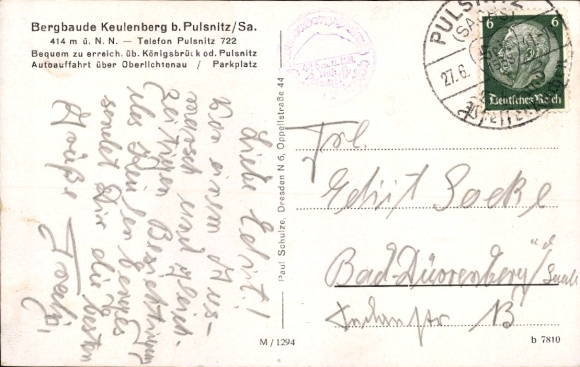 Bergbaude Keulenberg b. Pulsnitz/Sa.
414 m ü. N. N. — Telefon Pulsnitz 722
Bequem zu erreich. üb. Königsbrück od. Pulsnitz
Autoauffahrt über Oberlichtenau / Parkplatz
PULSNITZ
(SACHS)
27.6.
6 6
Deutsches Reich
Liebe Edit!
Vor einem Aus-
marsch und
zur
des Keulenberges
sendet Dir die besten
Grüße
Paul Schulze, Dresden N 6, Oppellstraße 44
Frl.
Edit
Bad-Dürrenberg/
a. d.
Saale
13
M / 1294
b 7810